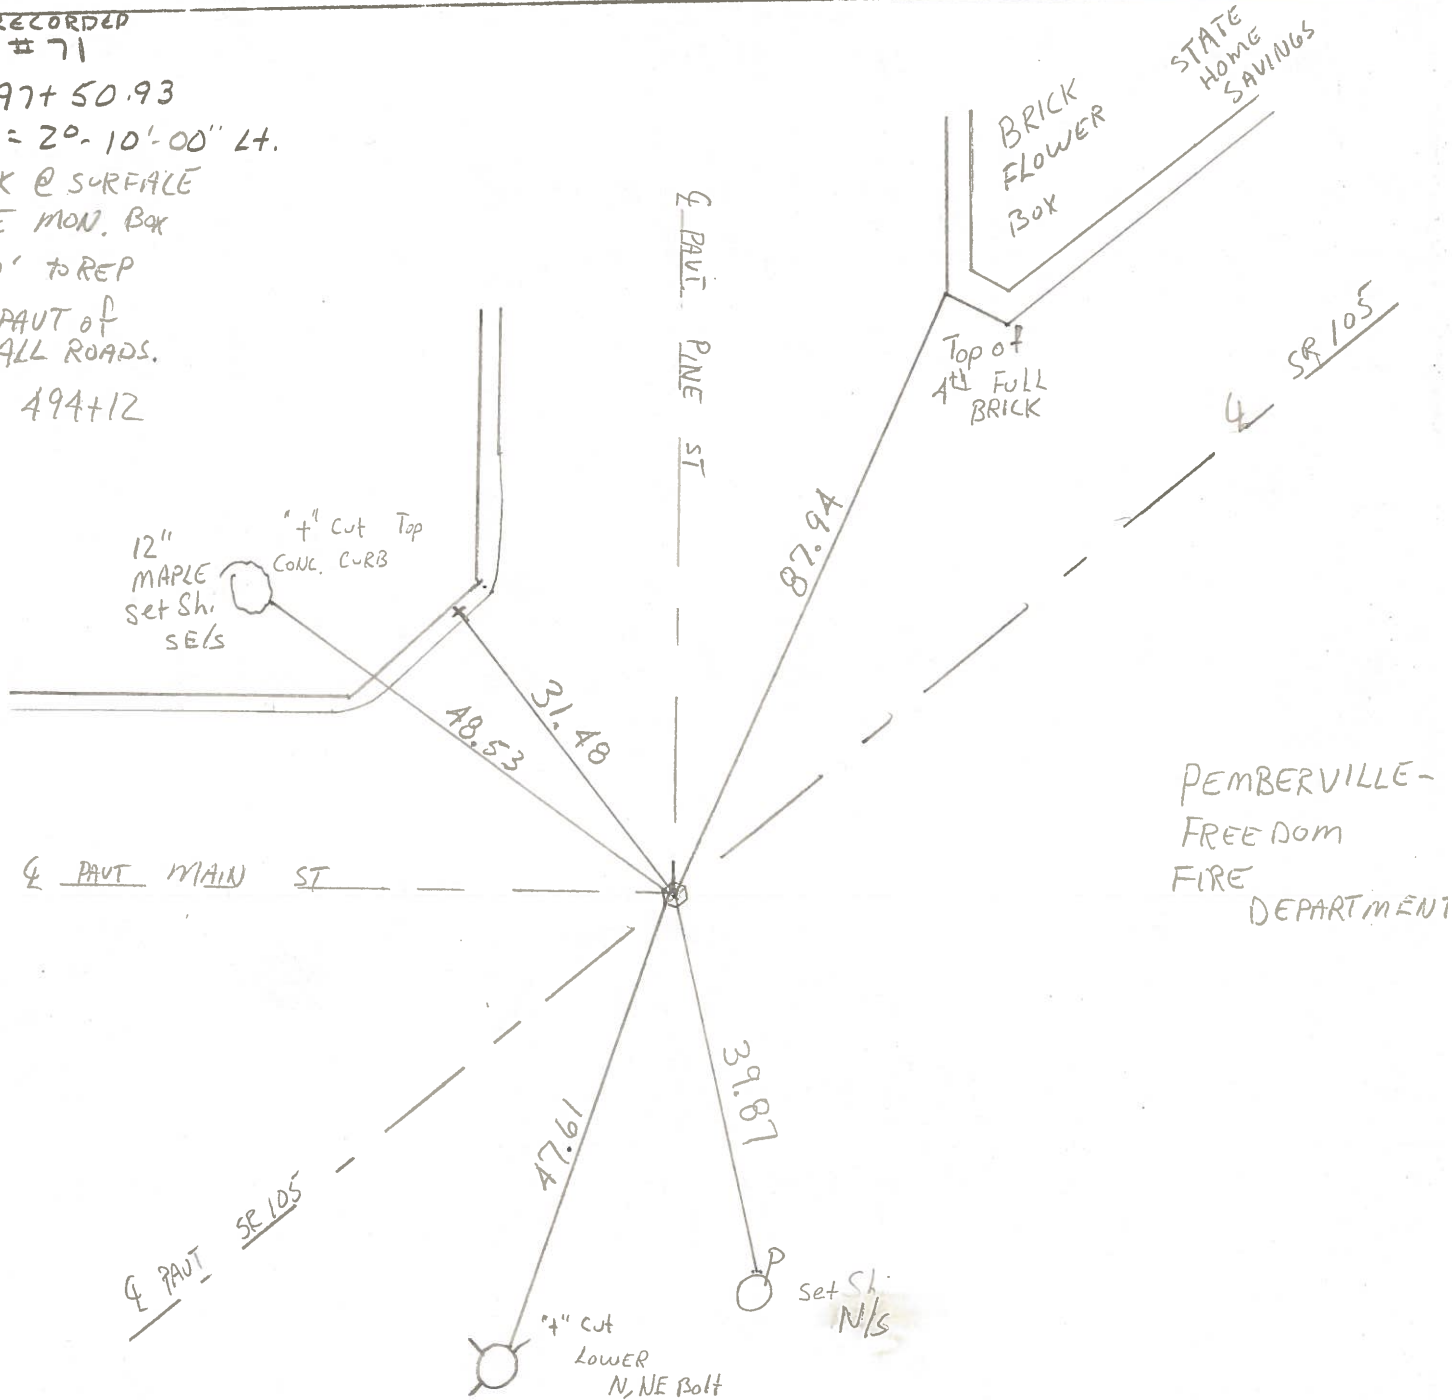 RECORDED
# 71
97+50.93
= 2°-10'-00" Lt.
K @ SURFACE
E MON. Box
' to REP
PAVT of
ALL ROADS.
494+12
STATE
HOME
SAVINGS
BRICK
FLOWER
BOX
℄ PAVT. PINE ST
Top of
4th FULL
BRICK
℄ SR 105
12"
MAPLE
Set Sh.
SE/s
"+" Cut Top
CONC. CURB
87.94
31.48
48.53
℄ PAVT MAIN ST
PEMBERVILLE-
FREEDOM
FIRE
DEPARTMENT
39.87
47.61
℄ PAVT SR 105
P
Set Sh.
N/s
"+" Cut
LOWER
N, NE Bolt